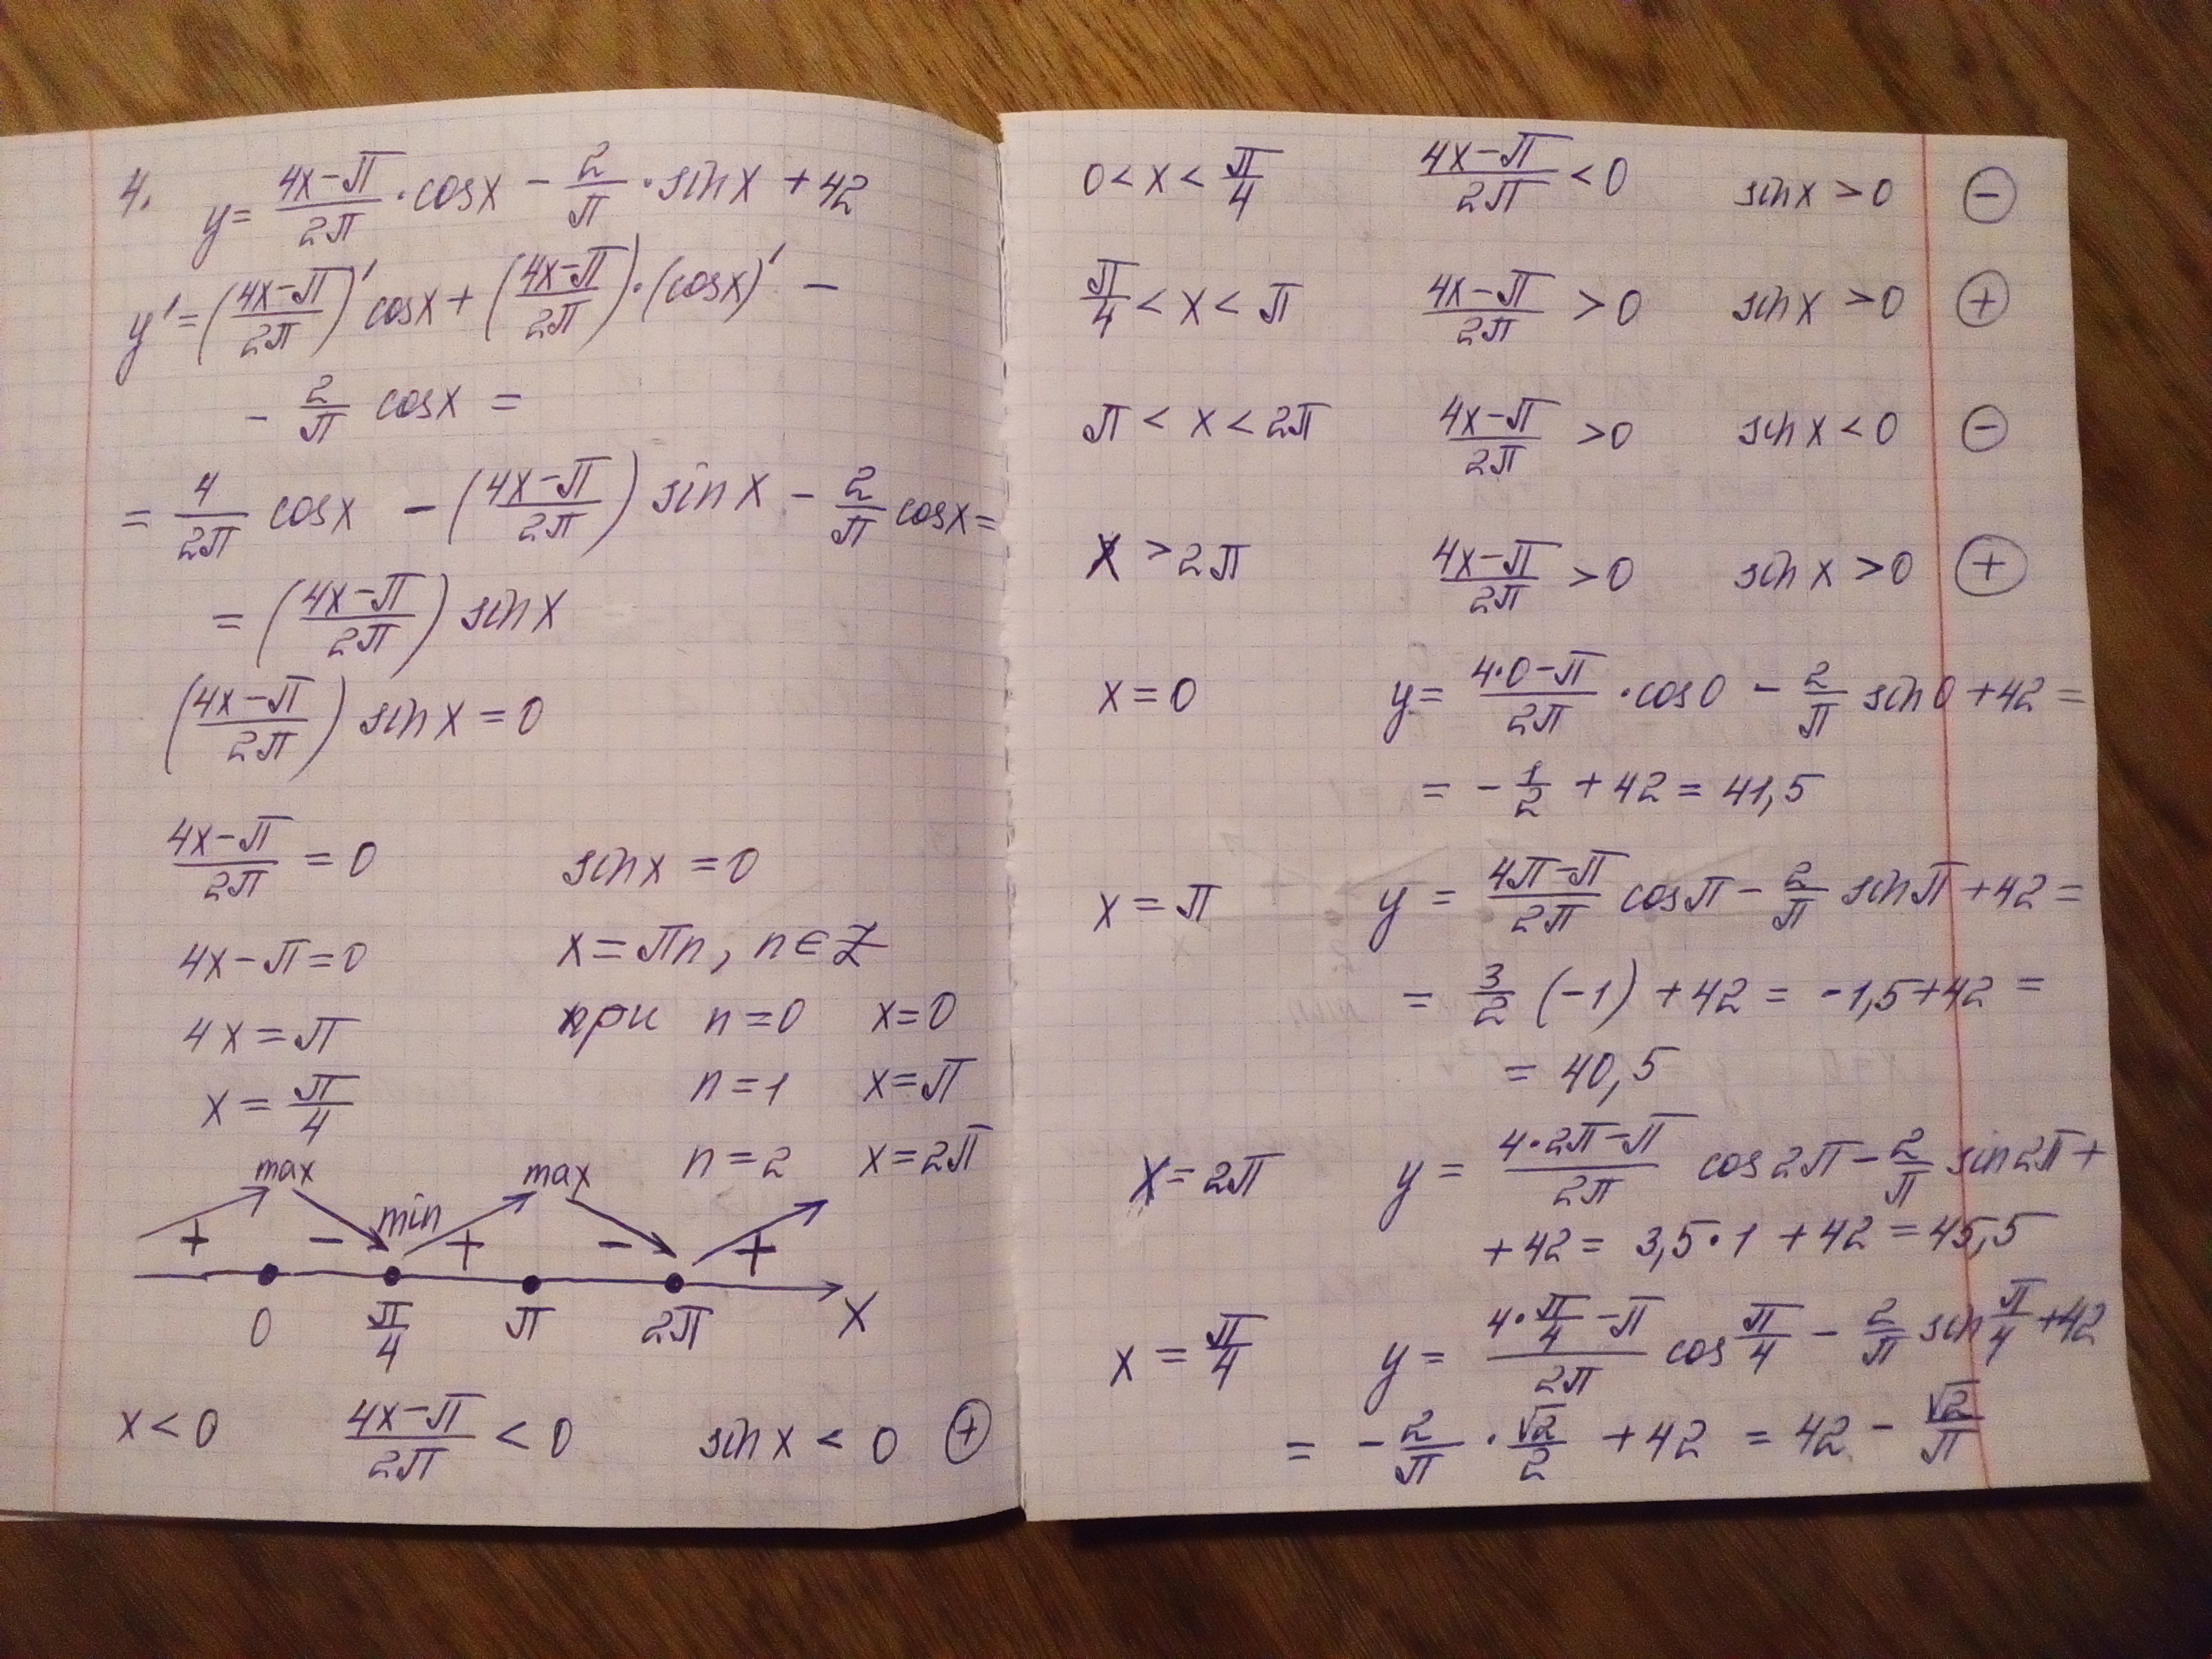 4. y = \frac{4x-π}{2π} · cosx - \frac{2}{π} · sinx + 42
y' = (\frac{4x-π}{2π})' cosx + (\frac{4x-π}{2π}) · (cosx)' -
- \frac{2}{π} cosx =
= \frac{4}{2π} cosx - (\frac{4x-π}{2π}) sinx - \frac{2}{π} cosx =
= (\frac{4x-π}{2π}) sinx
(\frac{4x-π}{2π}) sinx = 0
\frac{4x-π}{2π} = 0 sinx = 0
4x-π=0 x = πn, n ∈ Z
4x = π при n=0 x=0
x = \frac{π}{4} n=1 x=π
n=2 x=2π
max min max
+ - + - +
0 \frac{π}{4} π 2π x
x < 0 \frac{4x-π}{2π} < 0 sinx < 0 +
0 < x < \frac{π}{4} \frac{4x-π}{2π} < 0 sinx > 0 -
\frac{π}{4} < x < π \frac{4x-π}{2π} > 0 sinx > 0 +
π < x < 2π \frac{4x-π}{2π} > 0 sinx < 0 -
x > 2π \frac{4x-π}{2π} > 0 sinx > 0 +
x = 0 y = \frac{4·0-π}{2π} · cos0 - \frac{2}{π} sin0 + 42 =
= - \frac{1}{2} + 42 = 41,5
x = π y = \frac{4π-π}{2π} cosπ - \frac{2}{π} sinπ + 42 =
= \frac{3}{2} (-1) + 42 = -1,5 + 42 =
= 40,5
x = 2π y = \frac{4·2π-π}{2π} cos2π - \frac{2}{π} sin2π +
+ 42 = 3,5·1 + 42 = 45,5
x = \frac{π}{4} y = \frac{4·\frac{π}{4}-π}{2π} cos\frac{π}{4} - \frac{2}{π} sin\frac{π}{4} + 42
= - \frac{2}{π} · \frac{√2}{2} + 42 = 42 - \frac{√2}{π}